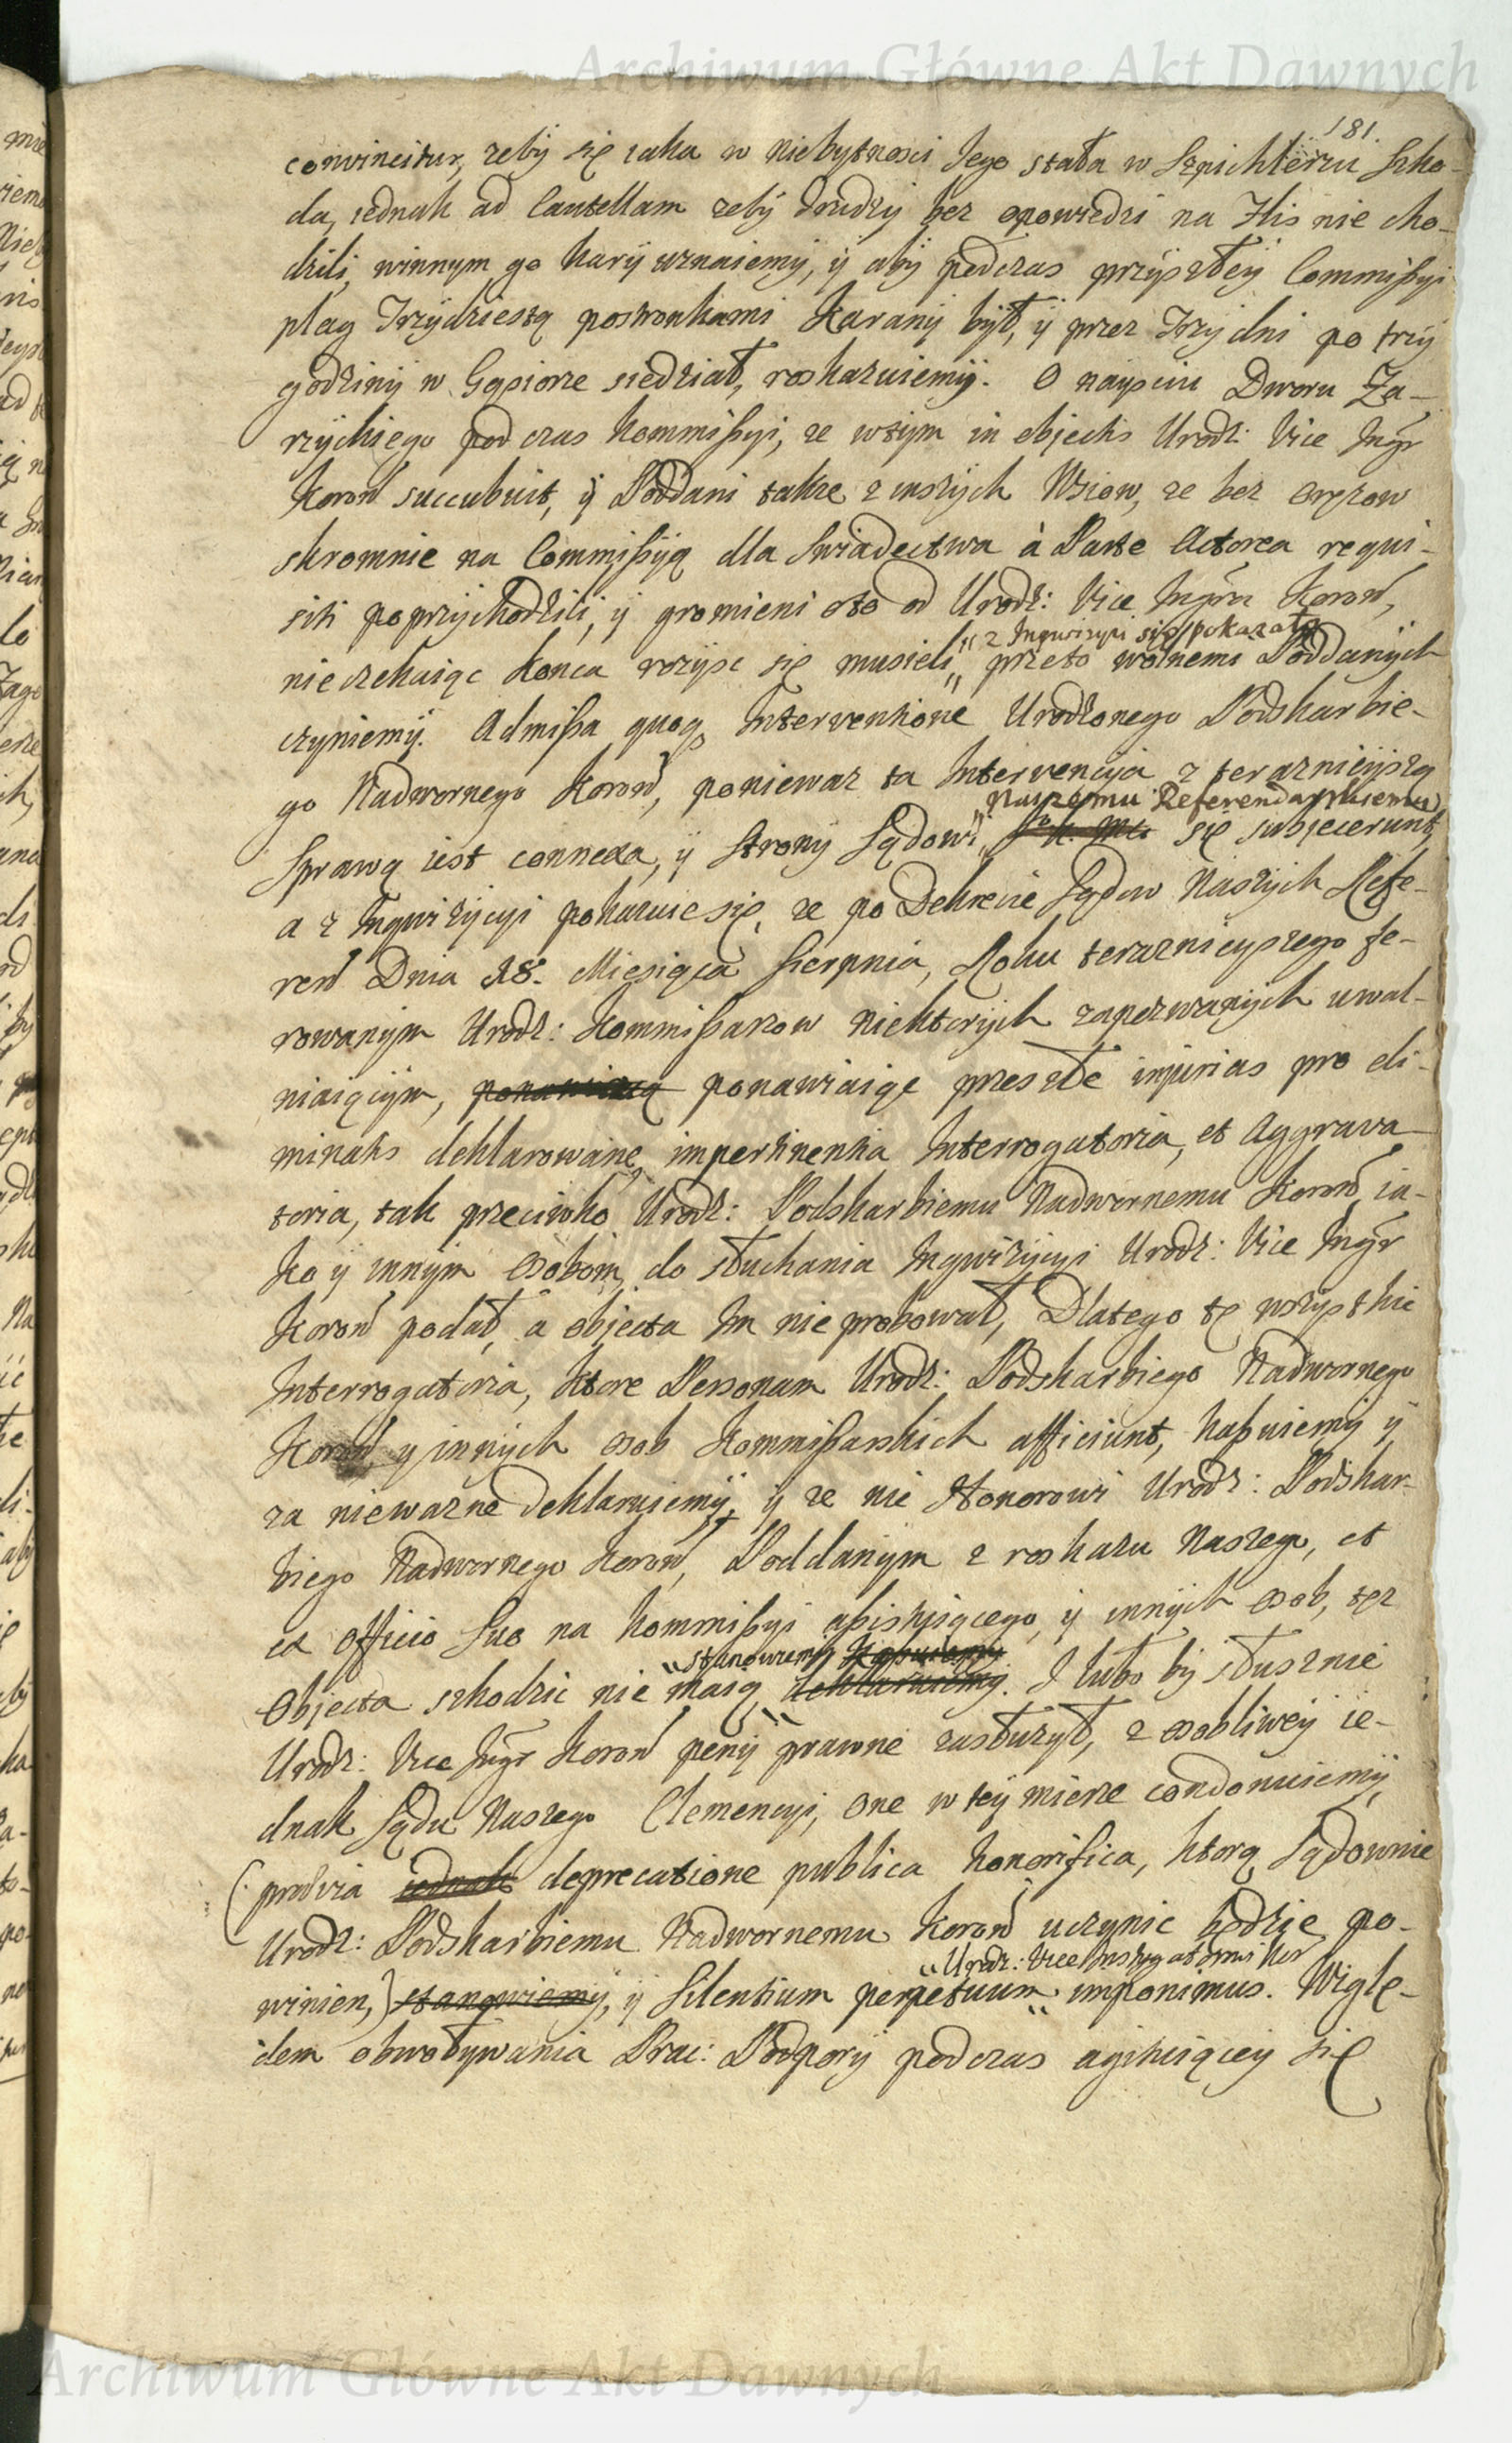 Archiwum Główne Akt Dawnych
181.
convincitur, zeby się taka w niebytnosci Jego stała w Szpichlerzu Szko-
da, iednak ad Cautellam zeby drudzy bez opowiedzi na Flis nie cho-
dzili, winnym go kary uznaiemy, y aby podczas przyszłey Commissyi
plag Trzydziestą postronkami karany był, y przez Trzy dni po trzy
godziny w Gąsiorze siedział, roskazuiemy. O naysciu Dworu Za-
rzyckiego podczas Kommissyi, ze w tym in objectis Urodz: Vice Insgr
Koron succubuit, y Poddani takze z inszych Wsiow, ze bez oręzow
skromnie na Commissyą dla Swiadectwa à Parte Actorea requi-
siti poprzychodzili, y gromieni oto od Urodz: Vice Insgra Koron,
nie czekaiąc konca rozysc się musieli,, przeto wolnemi Poddanych
„z Inqwizycyi się pokazało
czyniemy. Admissa quoq Interventione Urodzonego Podskarbie-
go Nadwornego Koron, poniewaz ta Intervencyja z teraznieyszą
Sprawą iest connexa, y Strony Sądowi,, J. K. Mci się subjecerunt,
„Naszemu Referendarskiemu
a z Inqwizycyi pokazuie się, ze po Dekrecie Sądow Naszych Refe-
ren Dnia 28. Miesiąca Sierpnia, Roku teraznieyszego fe-
rowanym Urodz: Kommissarzow niektorych zapozwanych uwal-
niaiącym, ponawiaiąc przeszłe injurias pro eli-
minatis deklarowane, impertinentia Interrogatoria, et Aggrava-
toria, tak przeciwko Urodz: Podskarbiemu Nadwornemu Koron, ia-
ko y innym Osobom, do słuchania Inqwizycyi Urodz: Vice Insgr
Koron podał, a objecta Im nie probował, Dlatego te wszystkie
Interrogatoria, ktore Personam Urodz: Podskarbiego Nadwornego
Koron y innych osob Kommissarskich afficiunt, kassuiemy y
za niewazne deklaruiemy, y ze nie Honorowi Urodz: Podskar-
biego Nadwornego Koron, Poddanym z roskazu Naszego, et
ex Officio Suo na Kommissyi assistuiącego, y innych osob, tez
Objecta szkodzic nie maią,, deklaruiemy. I lubo by słusznie
„stanowiemy kassuiemy
Urodz: Vice Insgr Koron peny prawne zasłuzył, z osobliwey ie-
dnak Sądu Naszego Clemencyi, one w tey mierze condonuiemy,
(prævia iednak deprecatione publica honorifica, ktorą Sądownie
Urodz: Podskarbiemu Nadwornemu Koron uczynic będzie po-
winien,) stanowiemy, y Silentium perpetuum,, imponimus. Wzglę-
„Urodz: Vice Instygatorowi Kor
dem obwoływania Prac: Podpory podczas agituiącey się
Archiwum Główne Akt Dawnych